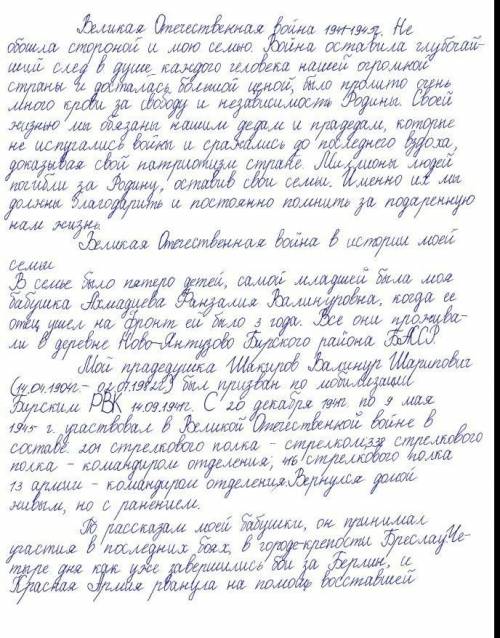 Великая Отечественная война 1941-1945г. Не
обошла стороной и мою семью. Война оставила глубочай-
ший след в душе каждого человека нашей огромной
страны и досталась большой ценой, было пролито очень
много крови за свободу и независимость Родины. Своей
жизнью мы обязаны нашим дедам и прадедам, которые
не испугались войны и сражались до последнего вздоха,
доказывая свой патриотизм стране. Миллионы людей
погибли за Родину, оставив свои семьи. Именно их мы
должны благодарить и постоянно помнить за подаренную
нам жизнь.
Великая Отечественная война в истории моей
семьи
В семье было пятеро детей, самой младшей была моя
бабушка Ахмадиева Фанзалия Валинуровна, когда ее
отец ушел на фронт ей было 3 года. Все они прожива-
ли в деревне Ново-Янтузово Бирского района БАССР
Мой прадедушка Шакиров Валинур Шарипович
(14.04.1904г.- 02.07.1982г.) был призван по мобилизации
Бирским РВК 14.09.1941г. С 20 декабря 1941г. по 9 мая
1945 г. участвовал в Великой Отечественной войне в
составе 201 стрелкового полка - стрелком, стрелкового
полка - командиром отделения, 416 стрелкового полка
13 армии - командиром отделения. Вернулся домой
живым, но с ранением.
По рассказам моей бабушки, он принимал
участия в последних боях, в городе-крепости Бреслау. Че-
тыре дня как уже завершились бои за Берлин, и
Красная Армия рванула на помощь восставшей